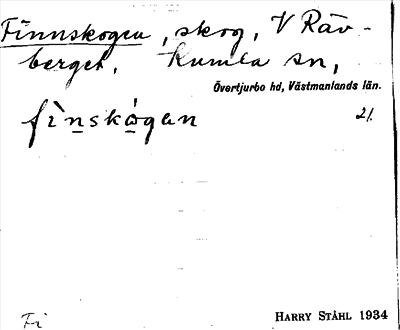 Finnskogen, skog, V Räv-
berget. Kumla sn,
Övertjurbo hd, Västmanlands län.
fìn̲skó̲gen 21.
Fi
HARRY STÅHL 1934